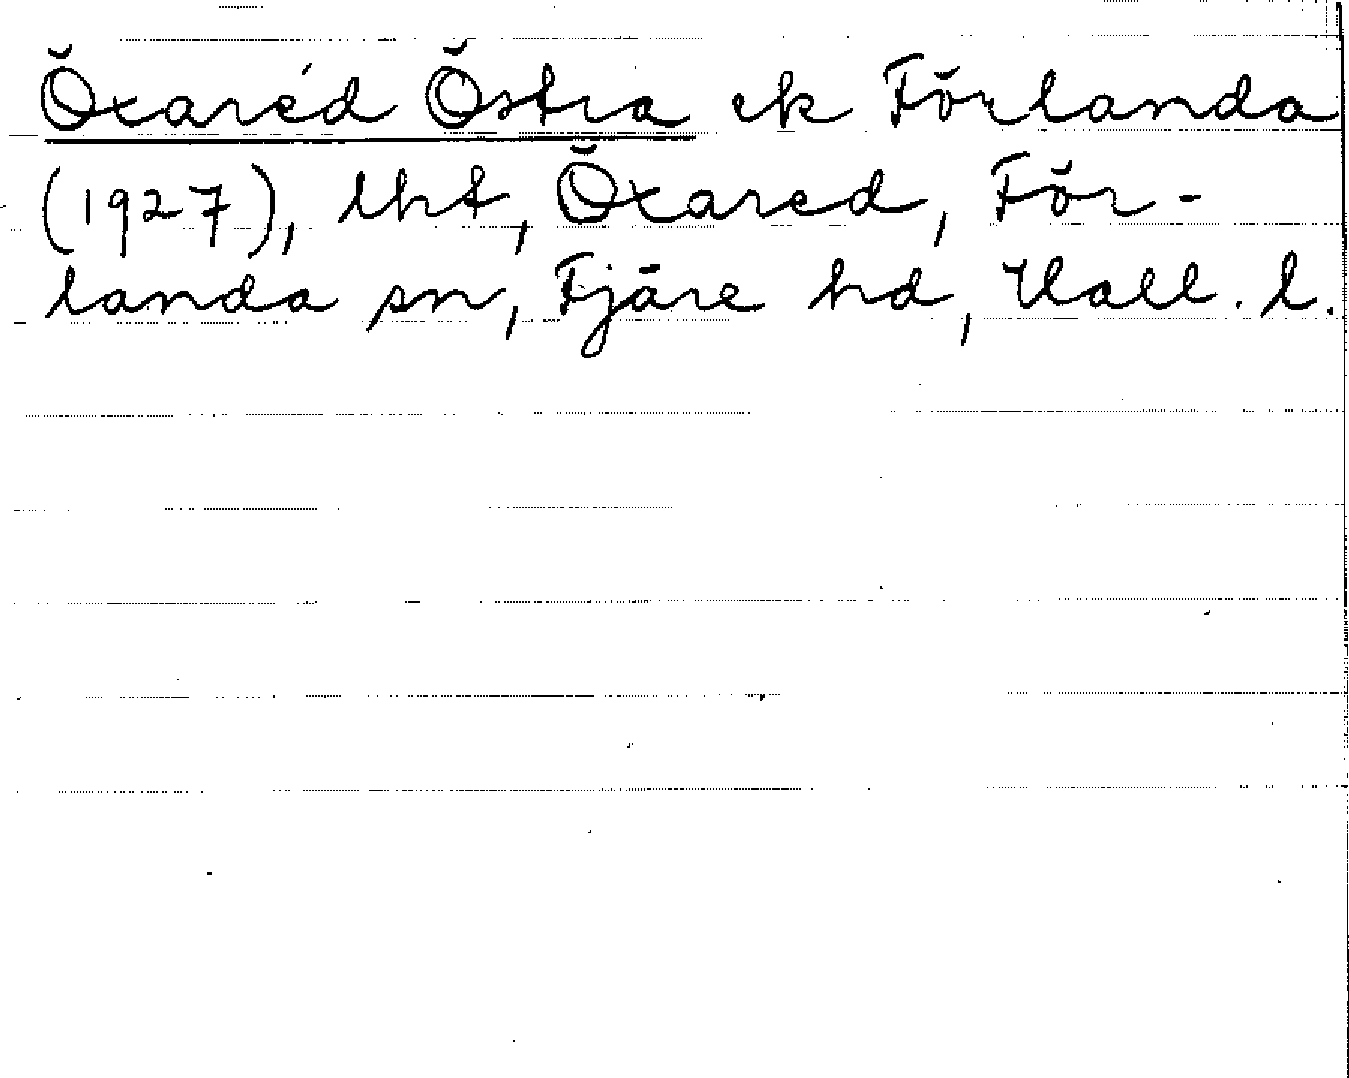 Öxaréd Östra ek Förlanda
(1927), lht, Öxared, För-
landa sn, Fjäre hd, Hall. l.